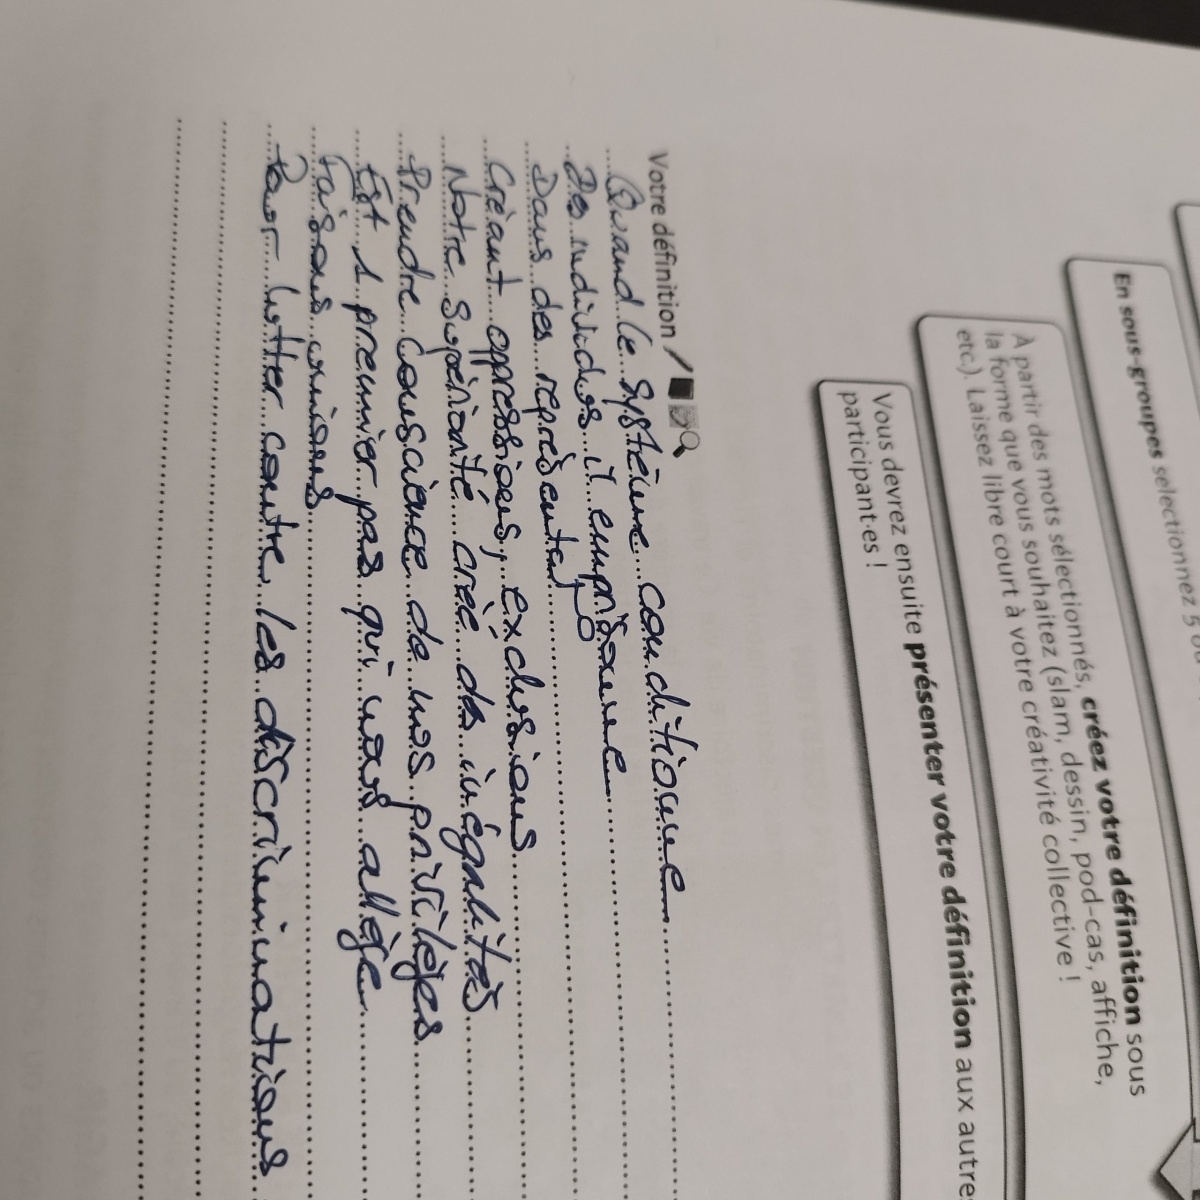 En sous-groupes sélectionnez 5
À partir des mots sélectionnés, créez votre définition sous
la forme que vous souhaitez (slam, dessin, pod-cas, affiche,
etc.). Laissez libre court à votre créativité collective !
Vous devrez ensuite présenter votre définition aux autres
participant·es !
Votre définition
Quand le système conditionne
Des individus il emprisonne
Dans des représentat°
Créant oppressions, exclusions
Notre supériorité crée des inégalités
Prendre conscience de nos privilèges
Est 1 premier pas qui nous allège
Faisons unions
Pour lutter contre les discriminations